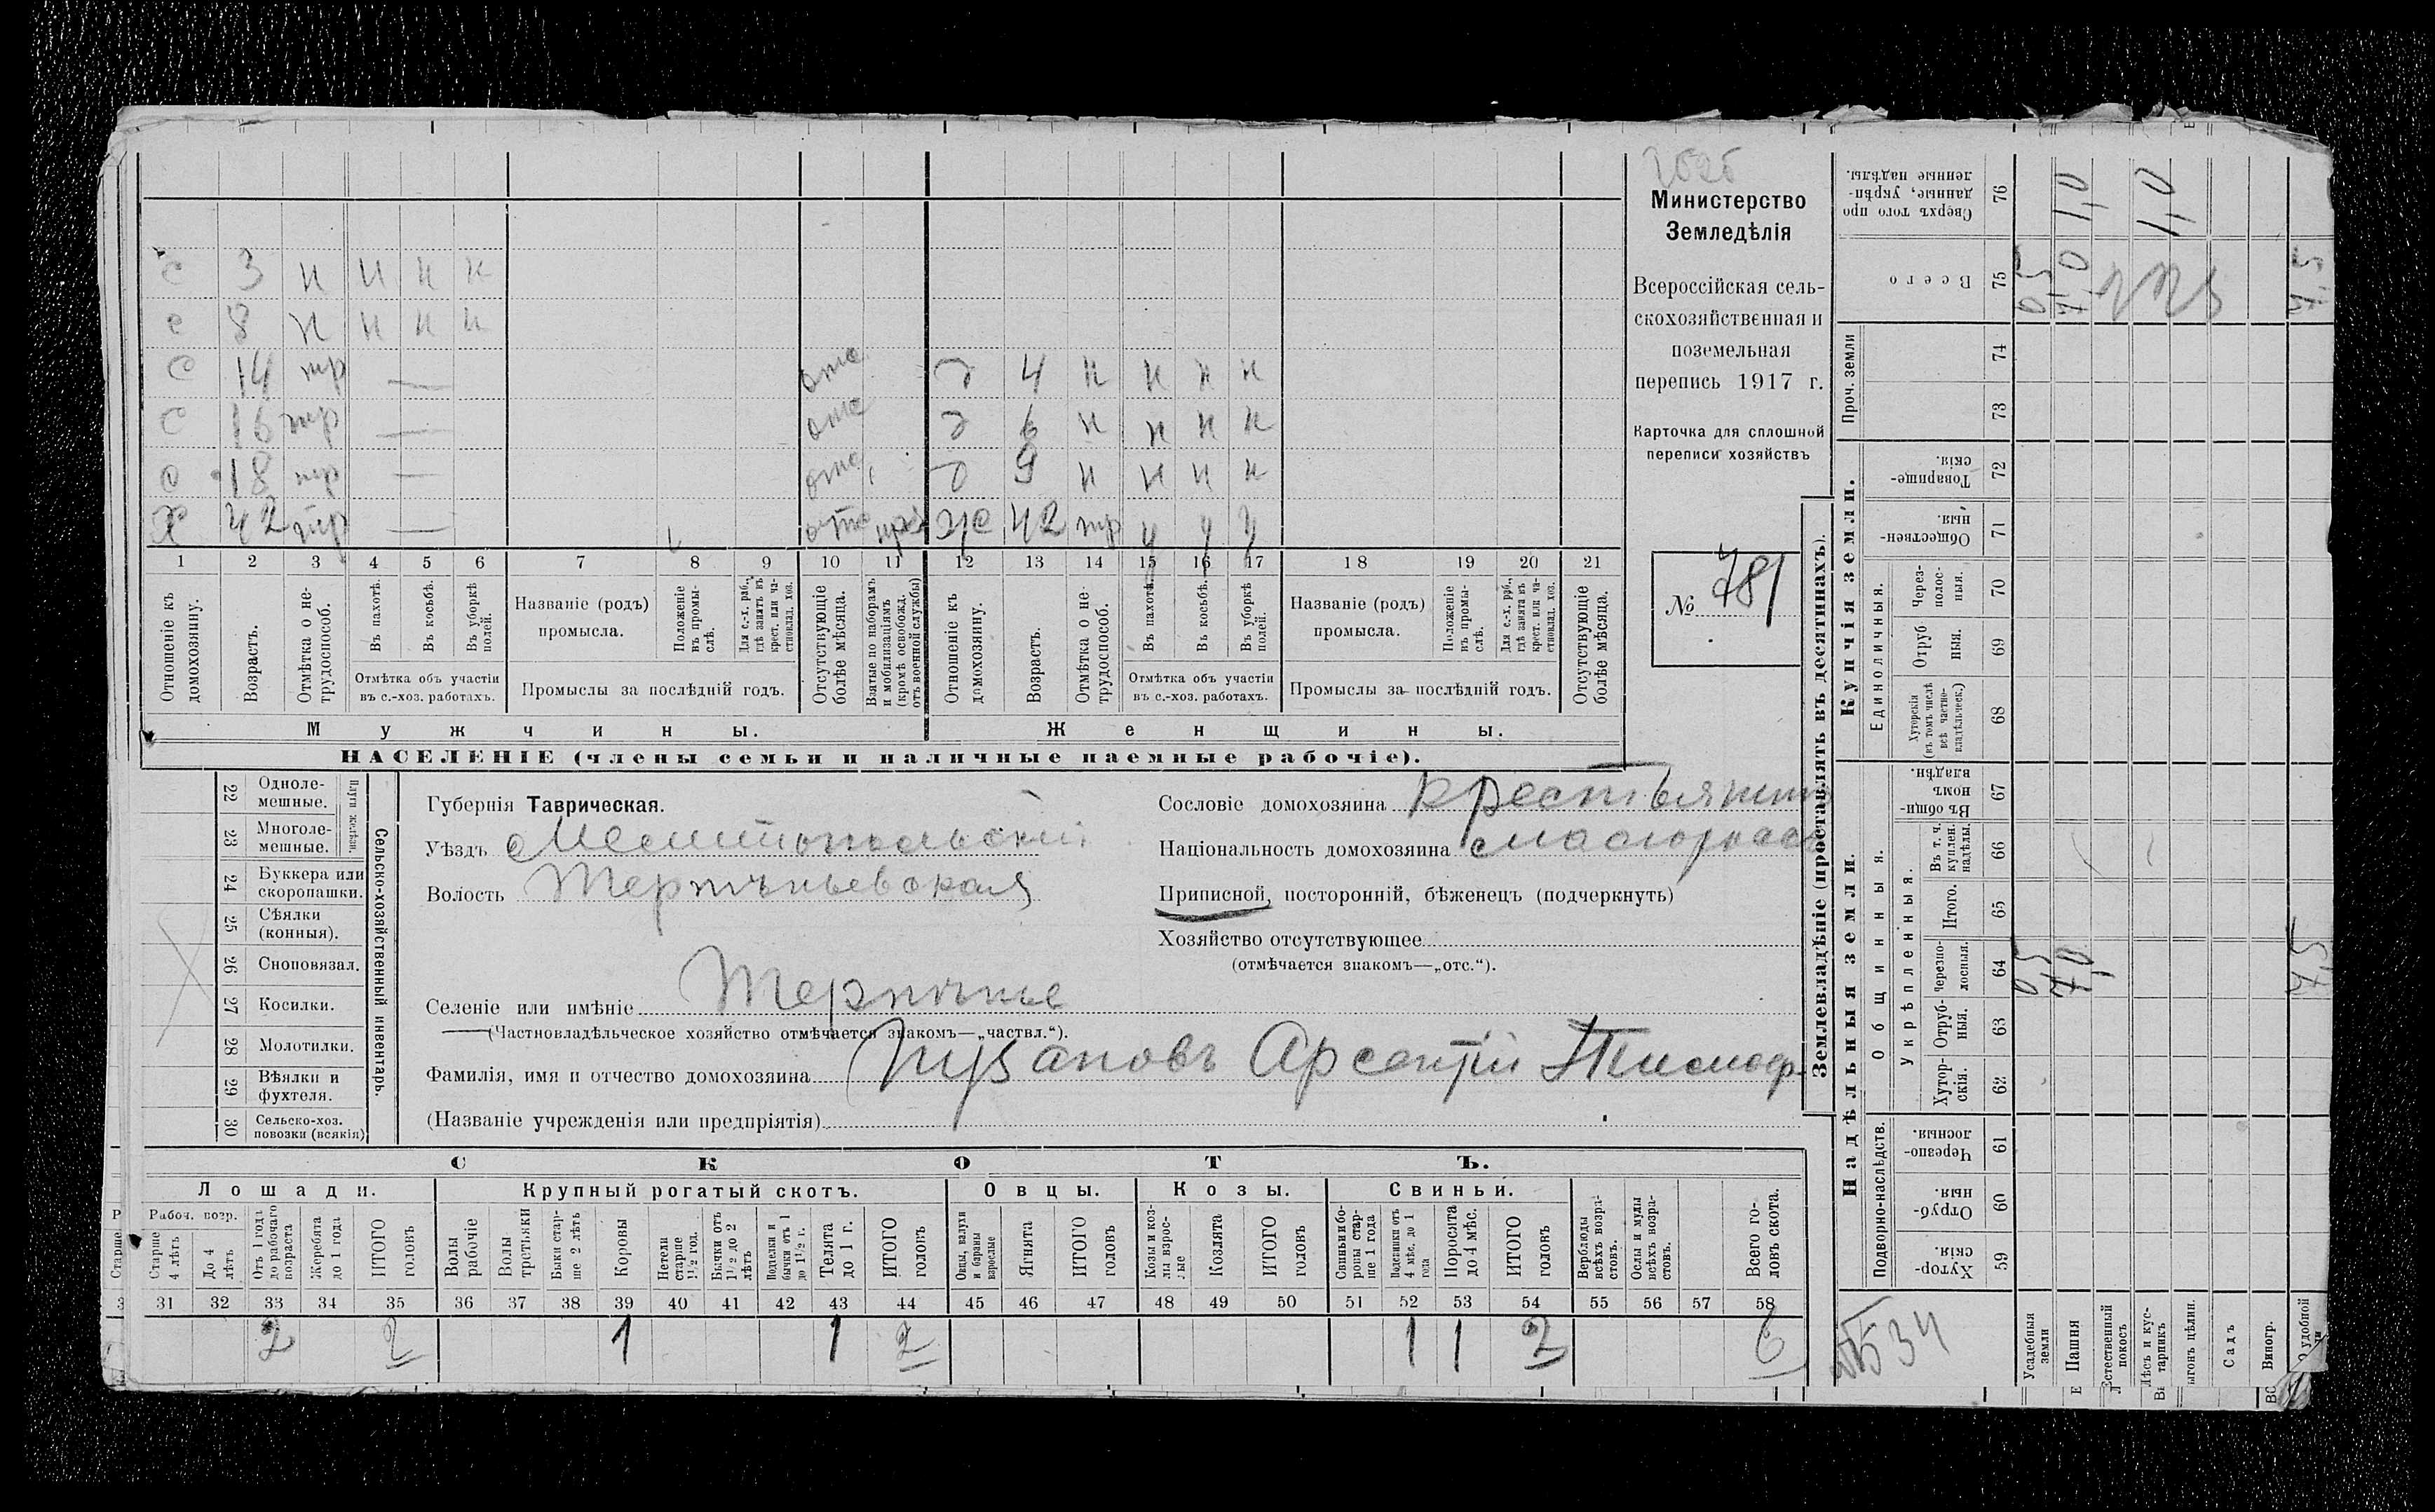 Министерство
Земледѣлія
Всероссійская сель-
скохозяйственная и
поземельная
перепись 1917 г.
Карточка для сплошной
переписи хозяйствъ
№ 781
с 3 н н н н
с 8 н н н н
с 14 тр — отс д 4 н н н н
с 16 тр — отс д 6 н н н н
с 18 тр — отс д 9 н н н н
х 42 тр — отс ж 42 тр у у у
1 2 3 4 5 6 7 8 9 10 11 12 13 14 15 16 17 18 19 20 21
Отношеніе къ домохозяину.
Возрастъ.
Отмѣтка о не-трудоспособ.
Въ пахотѣ.
Въ косьбѣ.
Въ уборкѣ полей.
Отмѣтка объ участіи въ с.-хоз. работахъ.
Названіе (родъ) промысла.
Положеніе въ промы-слѣ.
Для с.-х. раб., гдѣ занятъ въ крест. или ча-стновлад. хоз.
Промыслы за послѣдній годъ.
Отсутствующіе болѣе мѣсяца.
Взятые по наборамъ и мобилизаціямъ (кромѣ освобожд. отъ военной службы)
Отношеніе къ домохозяину.
Возрастъ.
Отмѣтка о не-трудоспособ.
Въ пахотѣ.
Въ косьбѣ.
Въ уборкѣ полей.
Отмѣтка объ участіи въ с.-хоз. работахъ.
Названіе (родъ) промысла.
Положеніе въ промы-слѣ.
Для с.-х. раб., гдѣ занята въ крест. или ча-стновлад. хоз.
Промыслы за послѣдній годъ.
Отсутствующіе болѣе мѣсяца.
Мужчины. Женщины.
НАСЕЛЕНІЕ (члены семьи и наличные наемные рабочіе).
Сельско-хозяйственный инвентарь.
Плуги желѣзн.
22 Одноле-мешные.
23 Многоле-мешные.
24 Буккера или скоропашки.
25 Сѣялки (конныя).
26 Сноповязал.
27 Косилки.
28 Молотилки.
29 Вѣялки и фухтеля.
30 Сельско-хоз. повозки (всякія)
Губернія Таврическая.
Уѣздъ Мелитопольскій
Волость Терпѣньевская
Селеніе или имѣніе Терпѣнье
(Частновладѣльческое хозяйство отмѣчается знакомъ—„частвл.“).
Фамилія, имя и отчество домохозяина Пузановъ Арсентій Тимоф.
(Названіе учрежденія или предпріятія)
Сословіе домохозяина крестьянинъ
Національность домохозяина малорос
Приписной, посторонній, бѣженецъ (подчеркнуть)
Хозяйство отсутствующее
(отмѣчается знакомъ—„отс.“).
СКОТЪ.
Лошади. Крупный рогатый скотъ. Овцы. Козы. Свиньи.
Рабоч. возр.
Старше 4 лѣтъ
До 4 лѣтъ
Отъ 1 года до рабочаго возраста
Жеребята до 1 года
ИТОГО головъ
Волы рабочіе
Волы третьяки
Быки стар-ше 2 лѣтъ
Коровы
Нетели старше 1½ год.
Бычки отъ 1½ до 2 лѣтъ
Подтелки и бычки отъ 1 до 1½ г.
Телята до 1 г.
ИТОГО головъ
Овцы, валухи и бараны взрослые
Ягнята
ИТОГО головъ
Козы и коз-лы взрос-лые
Козлята
ИТОГО головъ
Свиньи и бо-ровы стар-ше 1 года
Подсвинки отъ 4 мѣс. до 1 года
Поросята до 4 мѣс.
ИТОГО головъ
Верблюды всѣхъ возра-стовъ.
Ослы и мулы всѣхъ возра-стовъ.
Всего го-ловъ скота.
31 32 33 34 35 36 37 38 39 40 41 42 43 44 45 46 47 48 49 50 51 52 53 54 55 56 57 58
2 2 1 1 2 1 1 2 6
Землевладѣніе (проставлять въ десятинахъ).
Купчія земли.
Надѣльныя земли.
Проч. земли
Единоличныя.
Общинныя.
Укрѣпленныя.
Подворно-наслѣдств.
76 Сверхъ того про-данные, укрѣп-ленные надѣлы.
75 Всего
74
73
72 Товарище-скія.
71 Обществен-ныя.
70 Через-полос-ныя.
69 Отруб-ныя.
68 Хуторскія (въ томъ числѣ всѣ частно-владѣльческ.)
67 Въ общин-номъ владѣн.
66 Въ т. ч. куплен. надѣлы.
65 Итого.
64 Черезпо-лосныя.
63 Отруб-ныя.
62 Хутор-скія.
61 Черезпо-лосныя.
60 Отруб-ныя.
59 Хутор-скія.
Усадебныя земли
Пашня
Естественный покосъ
Лѣсъ и кус-тарникъ
Садъ
Виногр.
0,5
7,0
7,5
0,5
7,0 1,0
1,0
7,5